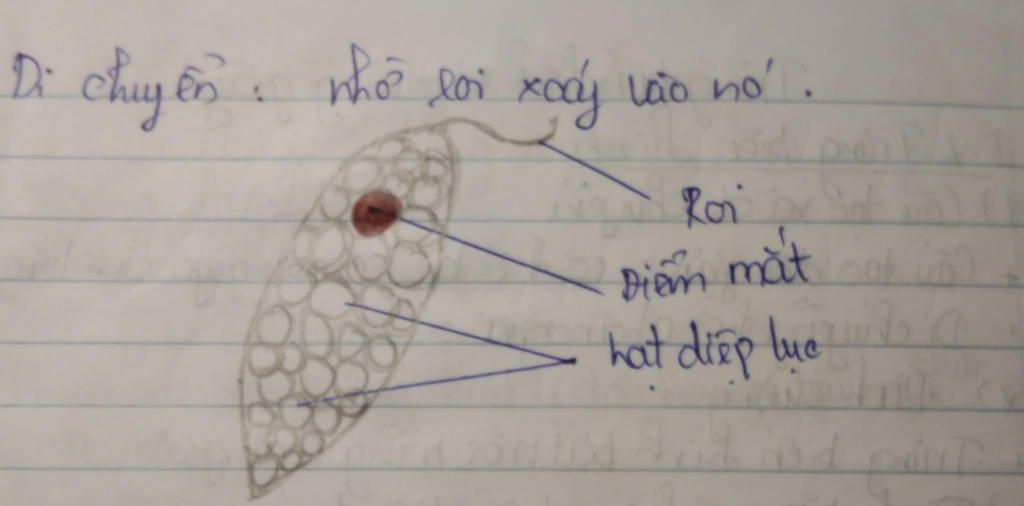 Di chuyển : nhờ roi xoáy vào nó.
Roi
Điểm mắt
hạt diệp lục